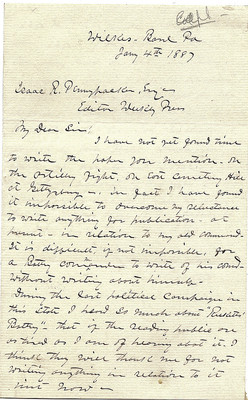 Wilkes-Barre Pa
Jany 4th 1887
Isaac R. Pennypacker, Esq
Editor Weekly Press
My Dear Sir!
I have not yet found time
to write the paper you mention. On
the Artillery fight, on East Cemetery Hill
at Gettysburg - in fact I have found
it impossible to overcome my reluctance
to write anything for publication - at
present - in relation to my old command.
It is difficult, if not impossible, for
a Battery commander to write of his comd.
without writing about himself -
During the last political Campaign in
this State I heard so much about "Ricketts
Battery" that if the reading public are
as tired as I am of hearing about it. I
think they will thank me for not
writing anything in relation to it
just now -